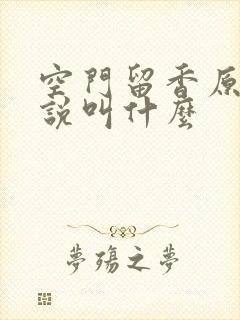 空門留香原
說叫什麼
夢殤之夢